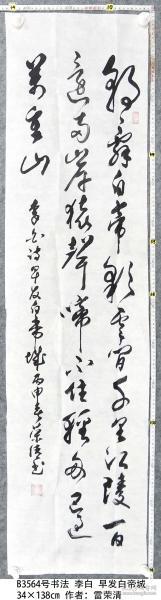 朝辞白帝彩云间千里江陵一百
还两岸猿声啼不住轻舟已过
万重山
李白诗早发白帝城丙申春荣清书
B3564号书法 李白 早发白帝城
34×138cm 作者：雷荣清